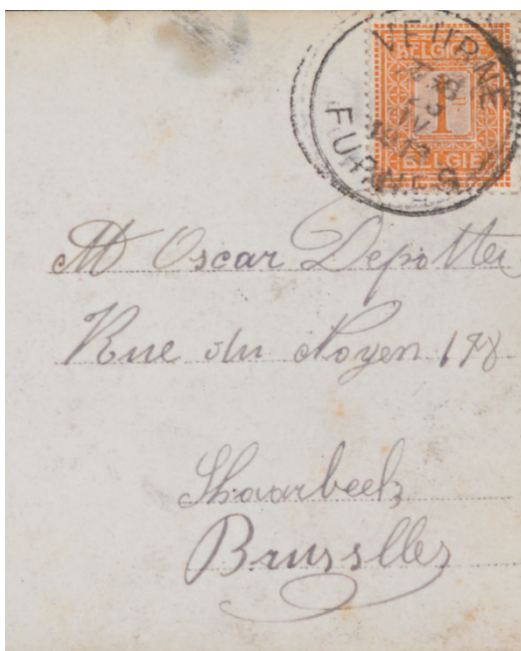 VEURNE
FURNES
BELGIQUE
1
BELGIË
M Oscar Depotter
Rue du Noyen 178
Shaarbeek
Brusslles